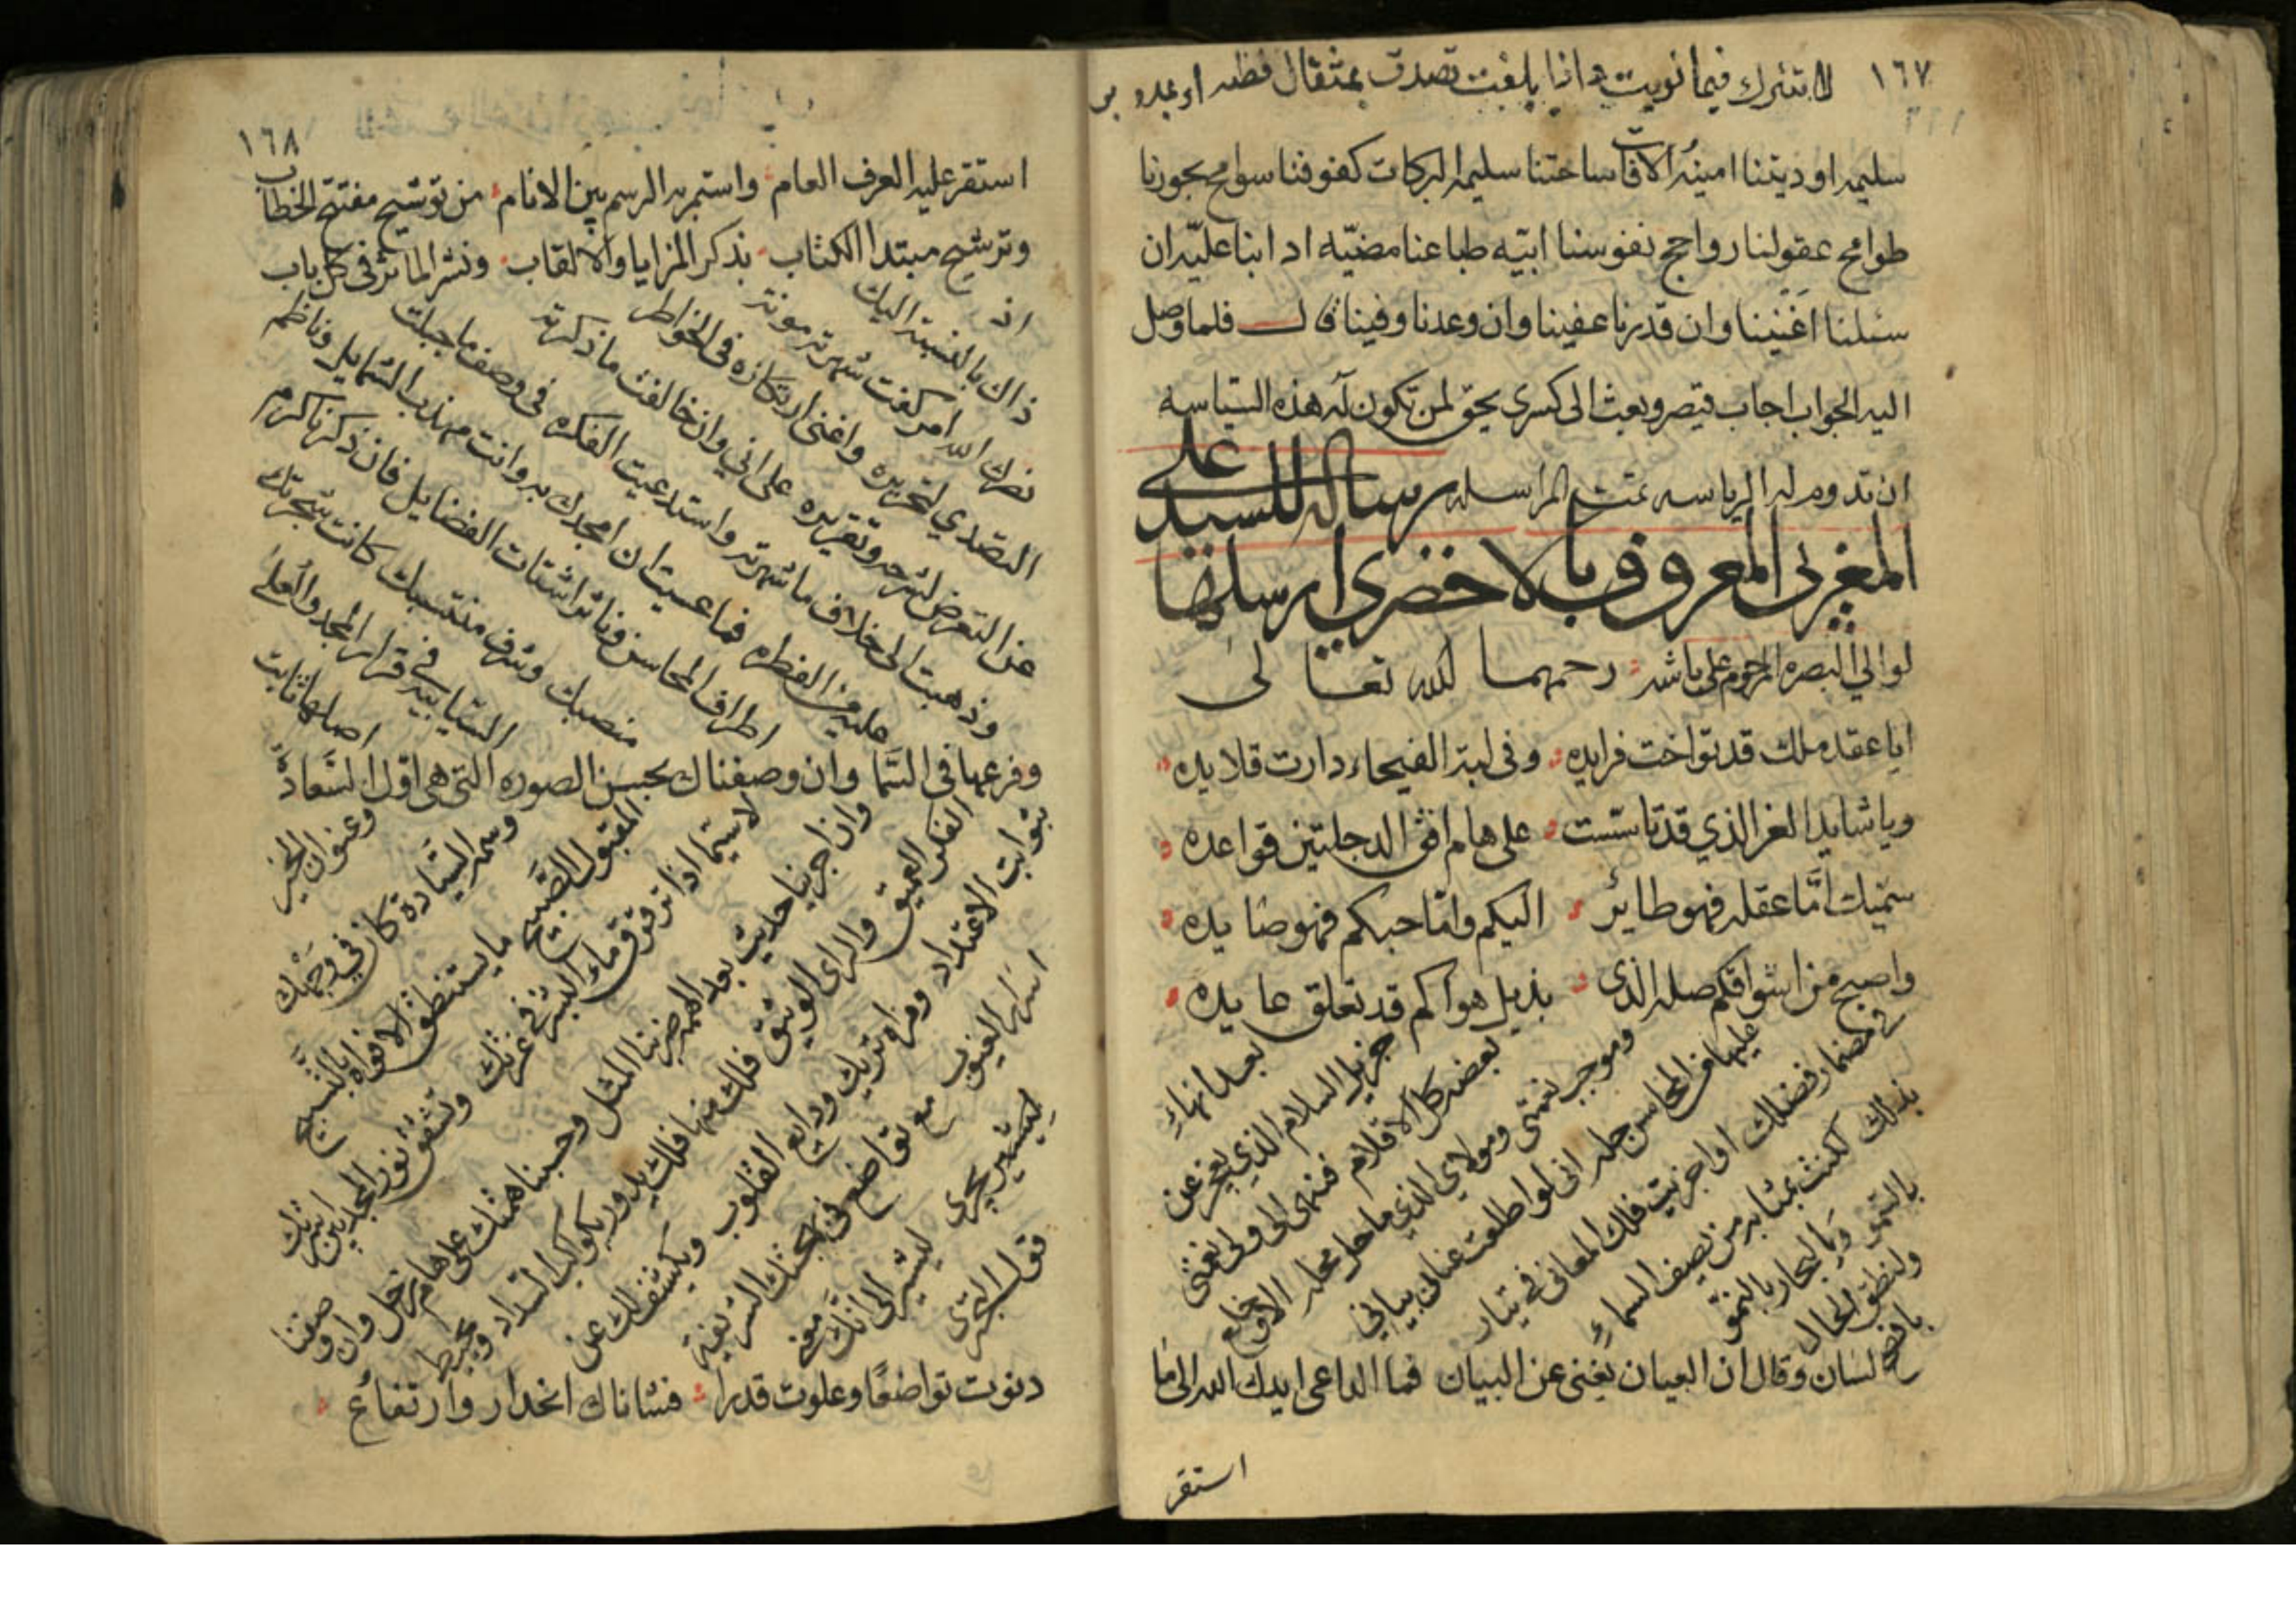 ١٦٧
لا تترك فيما نويت واذا بلغت تصدق بمثقال فضه او
سليمه اوديتنا امينة الآفات ساحتنا سليمه البركات كفوفنا سوامح بحورنا
طوامح عقولنا رواجح نفوسنا ابيّه طباعنا مضيّه ادابنا عليّه ان
سئلنا اغنينا وان قدرنا عفينا وان وعدنا وفينا قال فلما وصل
اليه الجواب اجاب قيصر وبعث الى كسرى يحق لمن تكون له هذه السياسه
ان تدوم له الرياسه تمت المراسله رساله للسيد علي
المغربي المعروف بالاخضري ارسلها
لوالي البصره المرحوم على باشه رحمهما الله تعالى
ايا عقد ملك قد تواخت فرايده وفي لبة الفيحاء دارت قلايده
ويا شايد العز الذي قد تاسّست على هام افق الدجلتين قواعده
سميك امّا عقله فهو طائر اليكم وامّا حبكم فهو صايده
واصبح من اشواقكم صله الذي بذيل هواكم قد تعلق عايده
بعد انهاء
جزيل السلام الذي يعجز عن
بعضه كل الاقلام فنهى الى ولى نعمتى
وموجب نعمتى ومولاي الذي ما حل محله الا وخلع
عليها من المحاسن حله اني لو اطلعت عنان بياني
في مضمار فضلك او اجريت فلك المعاني في تيار
بذلك لكنت بمثابه من يصف السماء
بالسمو وبالبحار بالنمو
ولنطق الحال
بافصح لسان وقال ان العيان يغني عن البيان فما الداعى ايدك الله الى ما
استقر
١٦٨
استقر عليه العرف العام واستمر به الرسم بين الانام من توشيح مفتتح الخطاب
وترشيح مبتدا الكتاب بذكر المزايا والالقاب ونشر الماثر في كل باب
اذ
ذاك بالنسبة اليك
نصرك الله امر كفت شهرته مونة
التصدي لتحريره واغنى ارتكازه في الخواطر
عن التعرض لشرحه وتقريره على اني وان خالفت ما ذكرته
وذهبت الى خلاف ما شهرته واستدعيت الفكره في وصف ما جبلت
عليه من الفطره فما عسيت ان امجدك به وانت مهذب الشمايل وناظم
اطراف المحاسن وناثر اشتات الفضايل فان ذكرنا كرم
منصبك وشرف منتسبك كانت شجرتك
السيابيه في قرار المجد والعلى
اصلها ثابت
وفرعها في السّما وان وصفناك بحسن الصوره التي هي اول السّعاده
وعنوان الخير
وسمة السّيادة كان في وجهك
المقبول الصّبيح ما يستنطق الافواه بالتسبيح
لاسيّما اذا ترقرق ماء البشر في غرتك وتشفق نور المجد بين اسرتك
وان اجرينا حديث بعد الهمه ضربنا المثل وحبسنا همتك على هام زحل وان وصفنا
الفكر العميق والراى الوثيق فلك منها فلك يدور بكواكب السداد ويحيط
بثوابت الاعتداد ومراة تريك ودايع القلوب ويكشف لك عن
اسرار الغيوب مع تواضع في بهجتك الشريفة
ليستشير بحرى ليشير الى انّك معنى
قول البحترى
دنوت تواضعًا وعلوت قدرا فشاناك انحدار وارتفاع